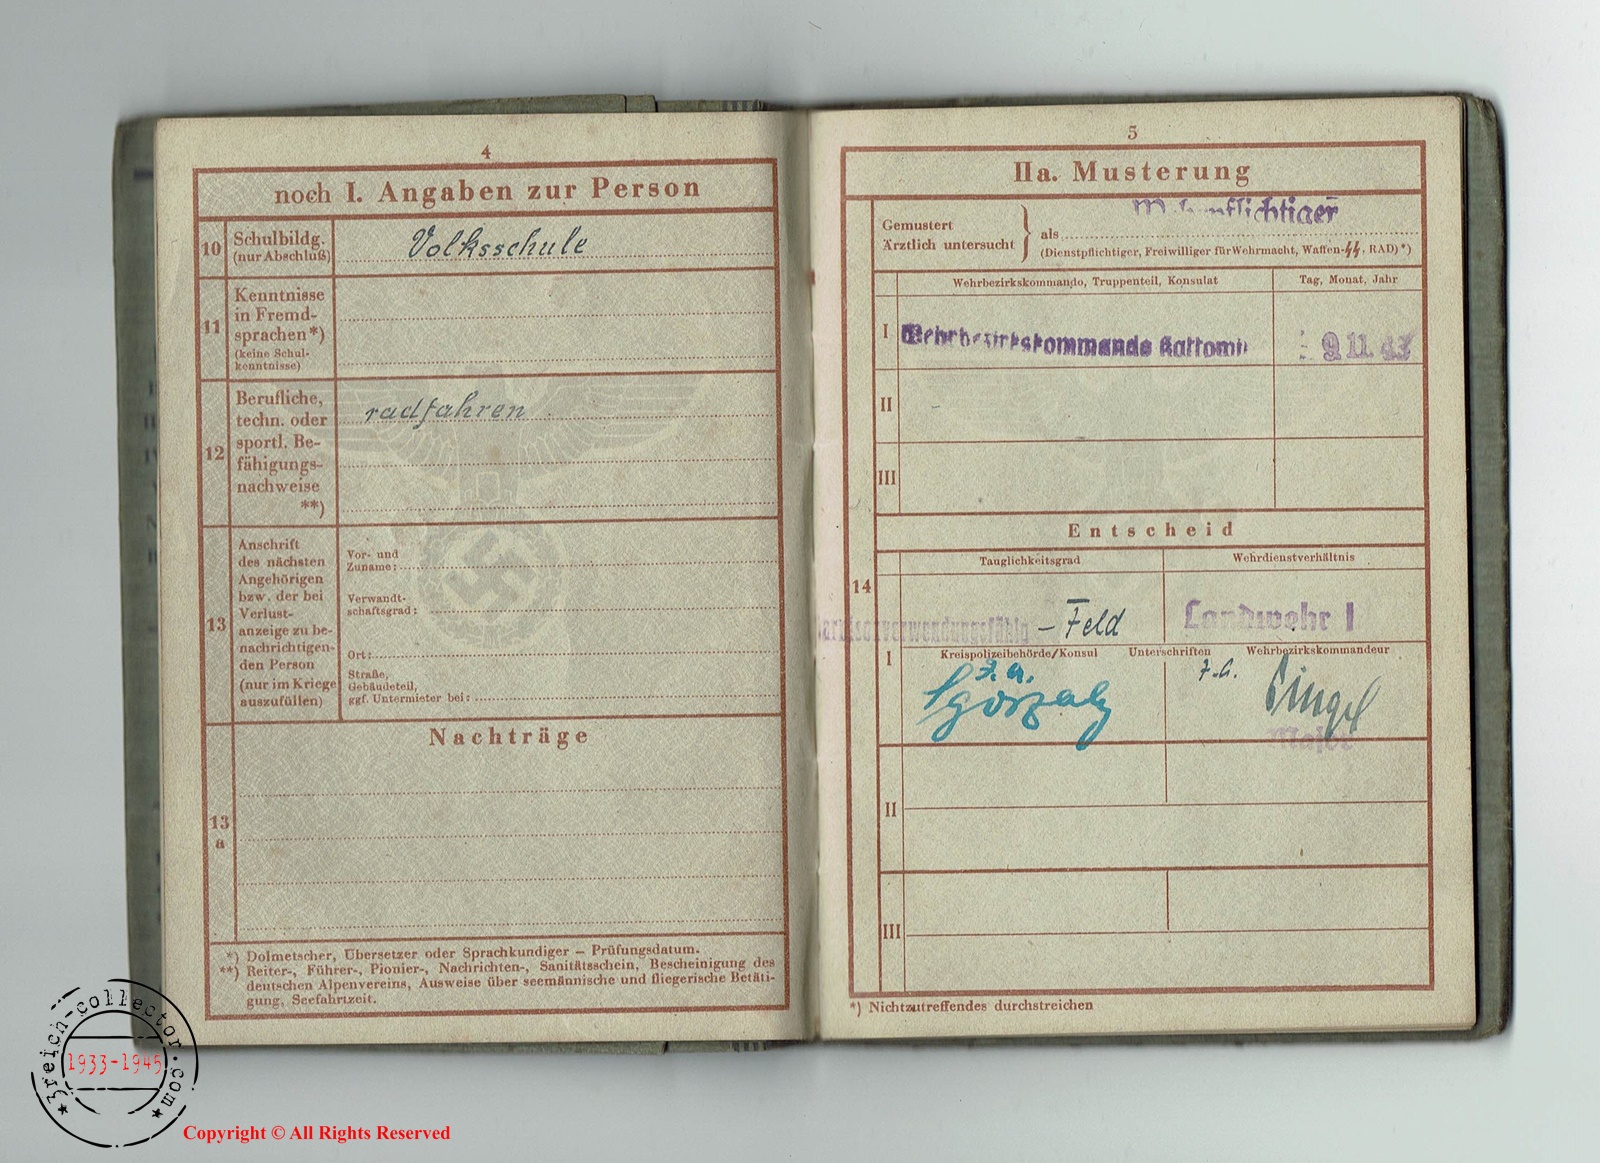 4
noch I. Angaben zur Person
10
Schulbildg.
(nur Abschluß)
Volksschule
11
Kenntnisse
in Fremd-
sprachen*)
(keine Schul-
kenntnisse)
12
Berufliche,
techn. oder
sportl. Be-
fähigungs-
nachweise
**)
radfahren
13
Anschrift
des nächsten
Angehörigen
bzw. der bei
Verlust-
anzeige zu be-
nachrichtigen-
den Person
(nur im Kriege
auszufüllen)
Vor- und
Zuname:
Verwandt-
schaftsgrad:
Ort:
Straße,
Gebäudeteil,
ggf. Untermieter bei:
Nachträge
13
a
*) Dolmetscher, Übersetzer oder Sprachkundiger – Prüfungsdatum.
**) Reiter-, Führer-, Pionier-, Nachrichten-, Sanitätsschein, Bescheinigung des
deutschen Alpenvereins, Ausweise über seemännische und fliegerische Betäti-
gung, Seefahrtzeit.
5
IIa. Musterung
Gemustert
Ärztlich untersucht
als
Wehrpflichtiger
(Dienstpflichtiger, Freiwilliger für Wehrmacht, Waffen-SS, RAD)*)
Wehrbezirkskommando, Truppenteil, Konsulat
Tag, Monat, Jahr
I
Wehrbezirkskommando Kattowitz
9 11. 43
II
III
Entscheid
14
Tauglichkeitsgrad
Wehrdienstverhältnis
I
verwendungsfähig – Feld
Landwehr I
Kreispolizeibehörde/Konsul
Unterschriften
Wehrbezirkskommandeur
Major
II
III
*) Nichtzutreffendes durchstreichen
3reich-collector.com
1933-1945
Copyright © All Rights Reserved